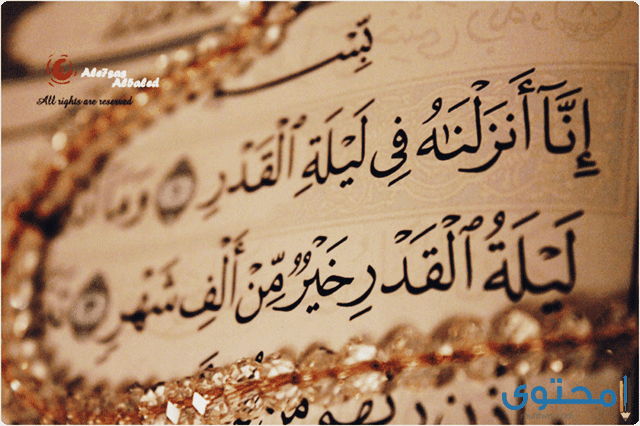 Ale7sas
Albaled
All rights are reserved
بِسْ
إِنَّآ أَنزَلْنَٰهُ فِى لَيْلَةِ ٱلْقَدْرِ وَمَآ
لَيْلَةُ ٱلْقَدْرِ خَيْرٌ مِّنْ أَلْفِ شَهْرٍ
محتوى